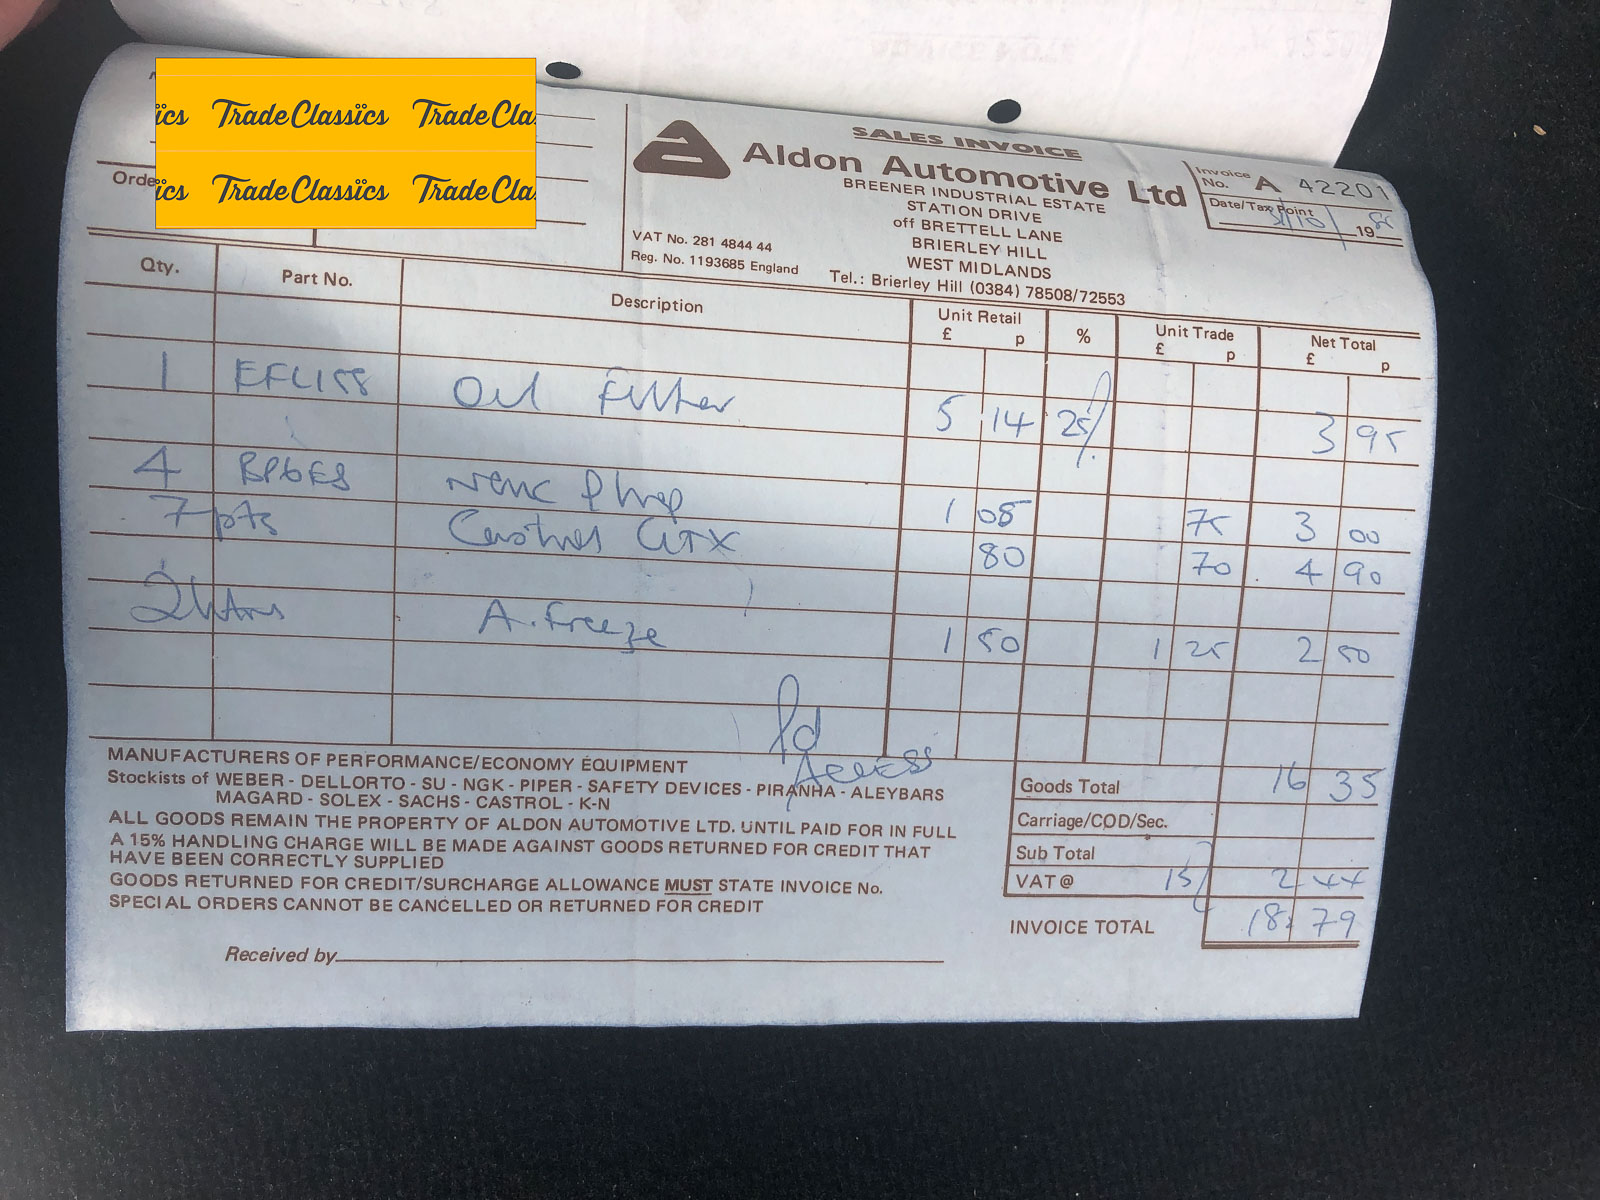 ics TradeClassics TradeCla
ics TradeClassics TradeCla
Orde
SALES INVOICE
Aldon Automotive Ltd
BREENER INDUSTRIAL ESTATE
STATION DRIVE
off BRETTELL LANE
BRIERLEY HILL
WEST MIDLANDS
Tel.: Brierley Hill (0384) 78508/72553
VAT No. 281 4844 44
Reg. No. 1193685 England
Invoice No. A 42201
Date/Tax Point 19
Qty. Part No. Description Unit Retail £ p % Unit Trade £ p Net Total £ p
1 Oil Filter 5 14 25% 3 95
4 BP6ES 1 08 75 3 00
7 pts Castrol GTX 80 70 4 90
2 A.freeze 1 50 1 25 2 50
Pd
Access
MANUFACTURERS OF PERFORMANCE/ECONOMY EQUIPMENT
Stockists of WEBER - DELLORTO - SU - NGK - PIPER - SAFETY DEVICES - PIRANHA - ALEYBARS
MAGARD - SOLEX - SACHS - CASTROL - K-N
ALL GOODS REMAIN THE PROPERTY OF ALDON AUTOMOTIVE LTD. UNTIL PAID FOR IN FULL
A 15% HANDLING CHARGE WILL BE MADE AGAINST GOODS RETURNED FOR CREDIT THAT
HAVE BEEN CORRECTLY SUPPLIED
GOODS RETURNED FOR CREDIT/SURCHARGE ALLOWANCE MUST STATE INVOICE No.
SPECIAL ORDERS CANNOT BE CANCELLED OR RETURNED FOR CREDIT
Goods Total 16 35
Carriage/COD/Sec.
Sub Total
VAT @ 15% 2 44
INVOICE TOTAL 18 79
Received by